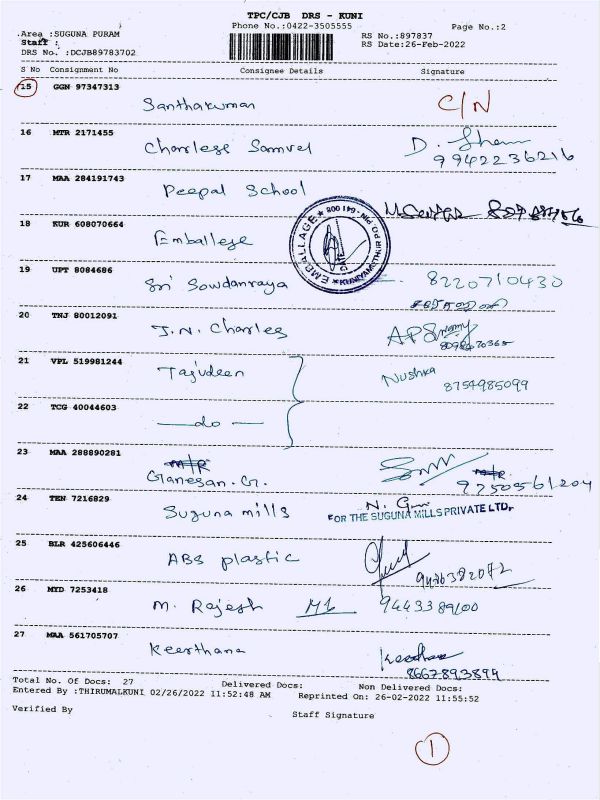 TPC/CJB DRS - KUNI
Phone No.:0422-3505555
Page No.:2
Area :SUGUNA PURAM
Staff :
RS No.:897837
DRS No. :DCJB89783702
RS Date:26-Feb-2022
S No Consignment No Consignee Details Signature
15 GGN 97347313
Santhakumar C/N
16 MTR 2171455
Charless Samvel D.
9942236216
17 MAA 284191743
Peepal School
18 KUR 608070664
Emballege
EMBALLAGE * KUNIYAMUTHUR PO, PIN - 641 008 *
19 UPT 8084686
Sri Sowdanraya 8220710430
20 TNJ 80012091
J.N. Charles
21 VPL 519981244
Tajudeen Nushka
8754985099
22 TCG 40044603
—do—
23 MAA 288890281
Ganesan. G. 9750561204
24 TEN 7216829
Suguna mills
FOR THE SUGUNA MILLS PRIVATE LTD.
25 BLR 425606446
ABS plastic
26 MYD 7253418
M. Rajesh
27 MAA 561705707
Keerthana Keerthana
8667893899
Total No. Of Docs: 27 Delivered Docs: Non Delivered Docs:
Entered By :THIRUMALKUNI 02/26/2022 11:52:48 AM Reprinted On: 26-02-2022 11:55:52
Verified By
Staff Signature
1